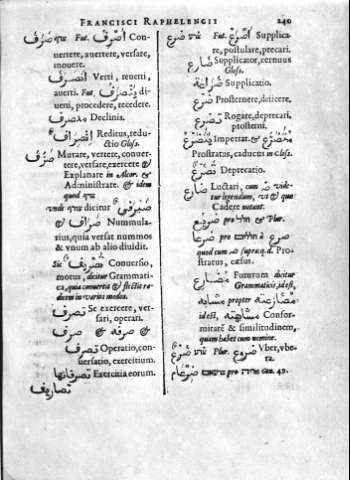 FRANCISCI RAPHELENGII 240
صرف Fut. اصرف Con-
uertere, auertere, versare,
mouere.
انصرف Verti, reuerti,
auerti. Fut. ينصرف di-
uerti, procedere, recedere.
منصرف Declinis.
انصراف Reditus, redu-
ctio Gloss.
صرف Mutare, vertere, conuer-
tere, versare, exercere &
Explanare in Alcor. &
Administrare. & idem
quod
vnde dicitur صيرفي
& صراف Nummula-
rius, quia versat nummos
& vnum ab alio diuidit.
Sic تصريف Conuersio,
motus, dicitur Grammati-
ca, quia conuertit & flectit ra-
dicem in varios modos.
تصرف Se exercere, ver-
sari, operari.
صرف & صرفة &
تصرف Operatio, con-
uersatio, exercitium.
تصرفاتها Exercitia eorum.
تصاريف
ضرع Fut. اضرع Supplica-
re, postulare, precari.
ضارع Supplicator, cernuus
Gloss.
ضراعة Supplicatio.
ضرع Prosternere, deiicere.
تضرع Rogare, deprecari,
prosterni.
متضرع Impetrat. &
Prostratus, caducus in Gloss.
تضرع Deprecatio.
ضارع Luctari, cum vide-
tur legendum, &que
Cadere notant.
pro & Plur.
ضرعا pro
quod cum supra q.d. Pro-
stratus, cæsus.
مضارع Futurum dicitur
Grammaticis, idest,
مشابه propter مضارعته
idest, مشابهته Confor-
mitatē & similitudinem,
quam habet cum nomine.
ضرع Plur. ضروع Vber, vbe-
ra.
ضرعام pro Gen. 49.